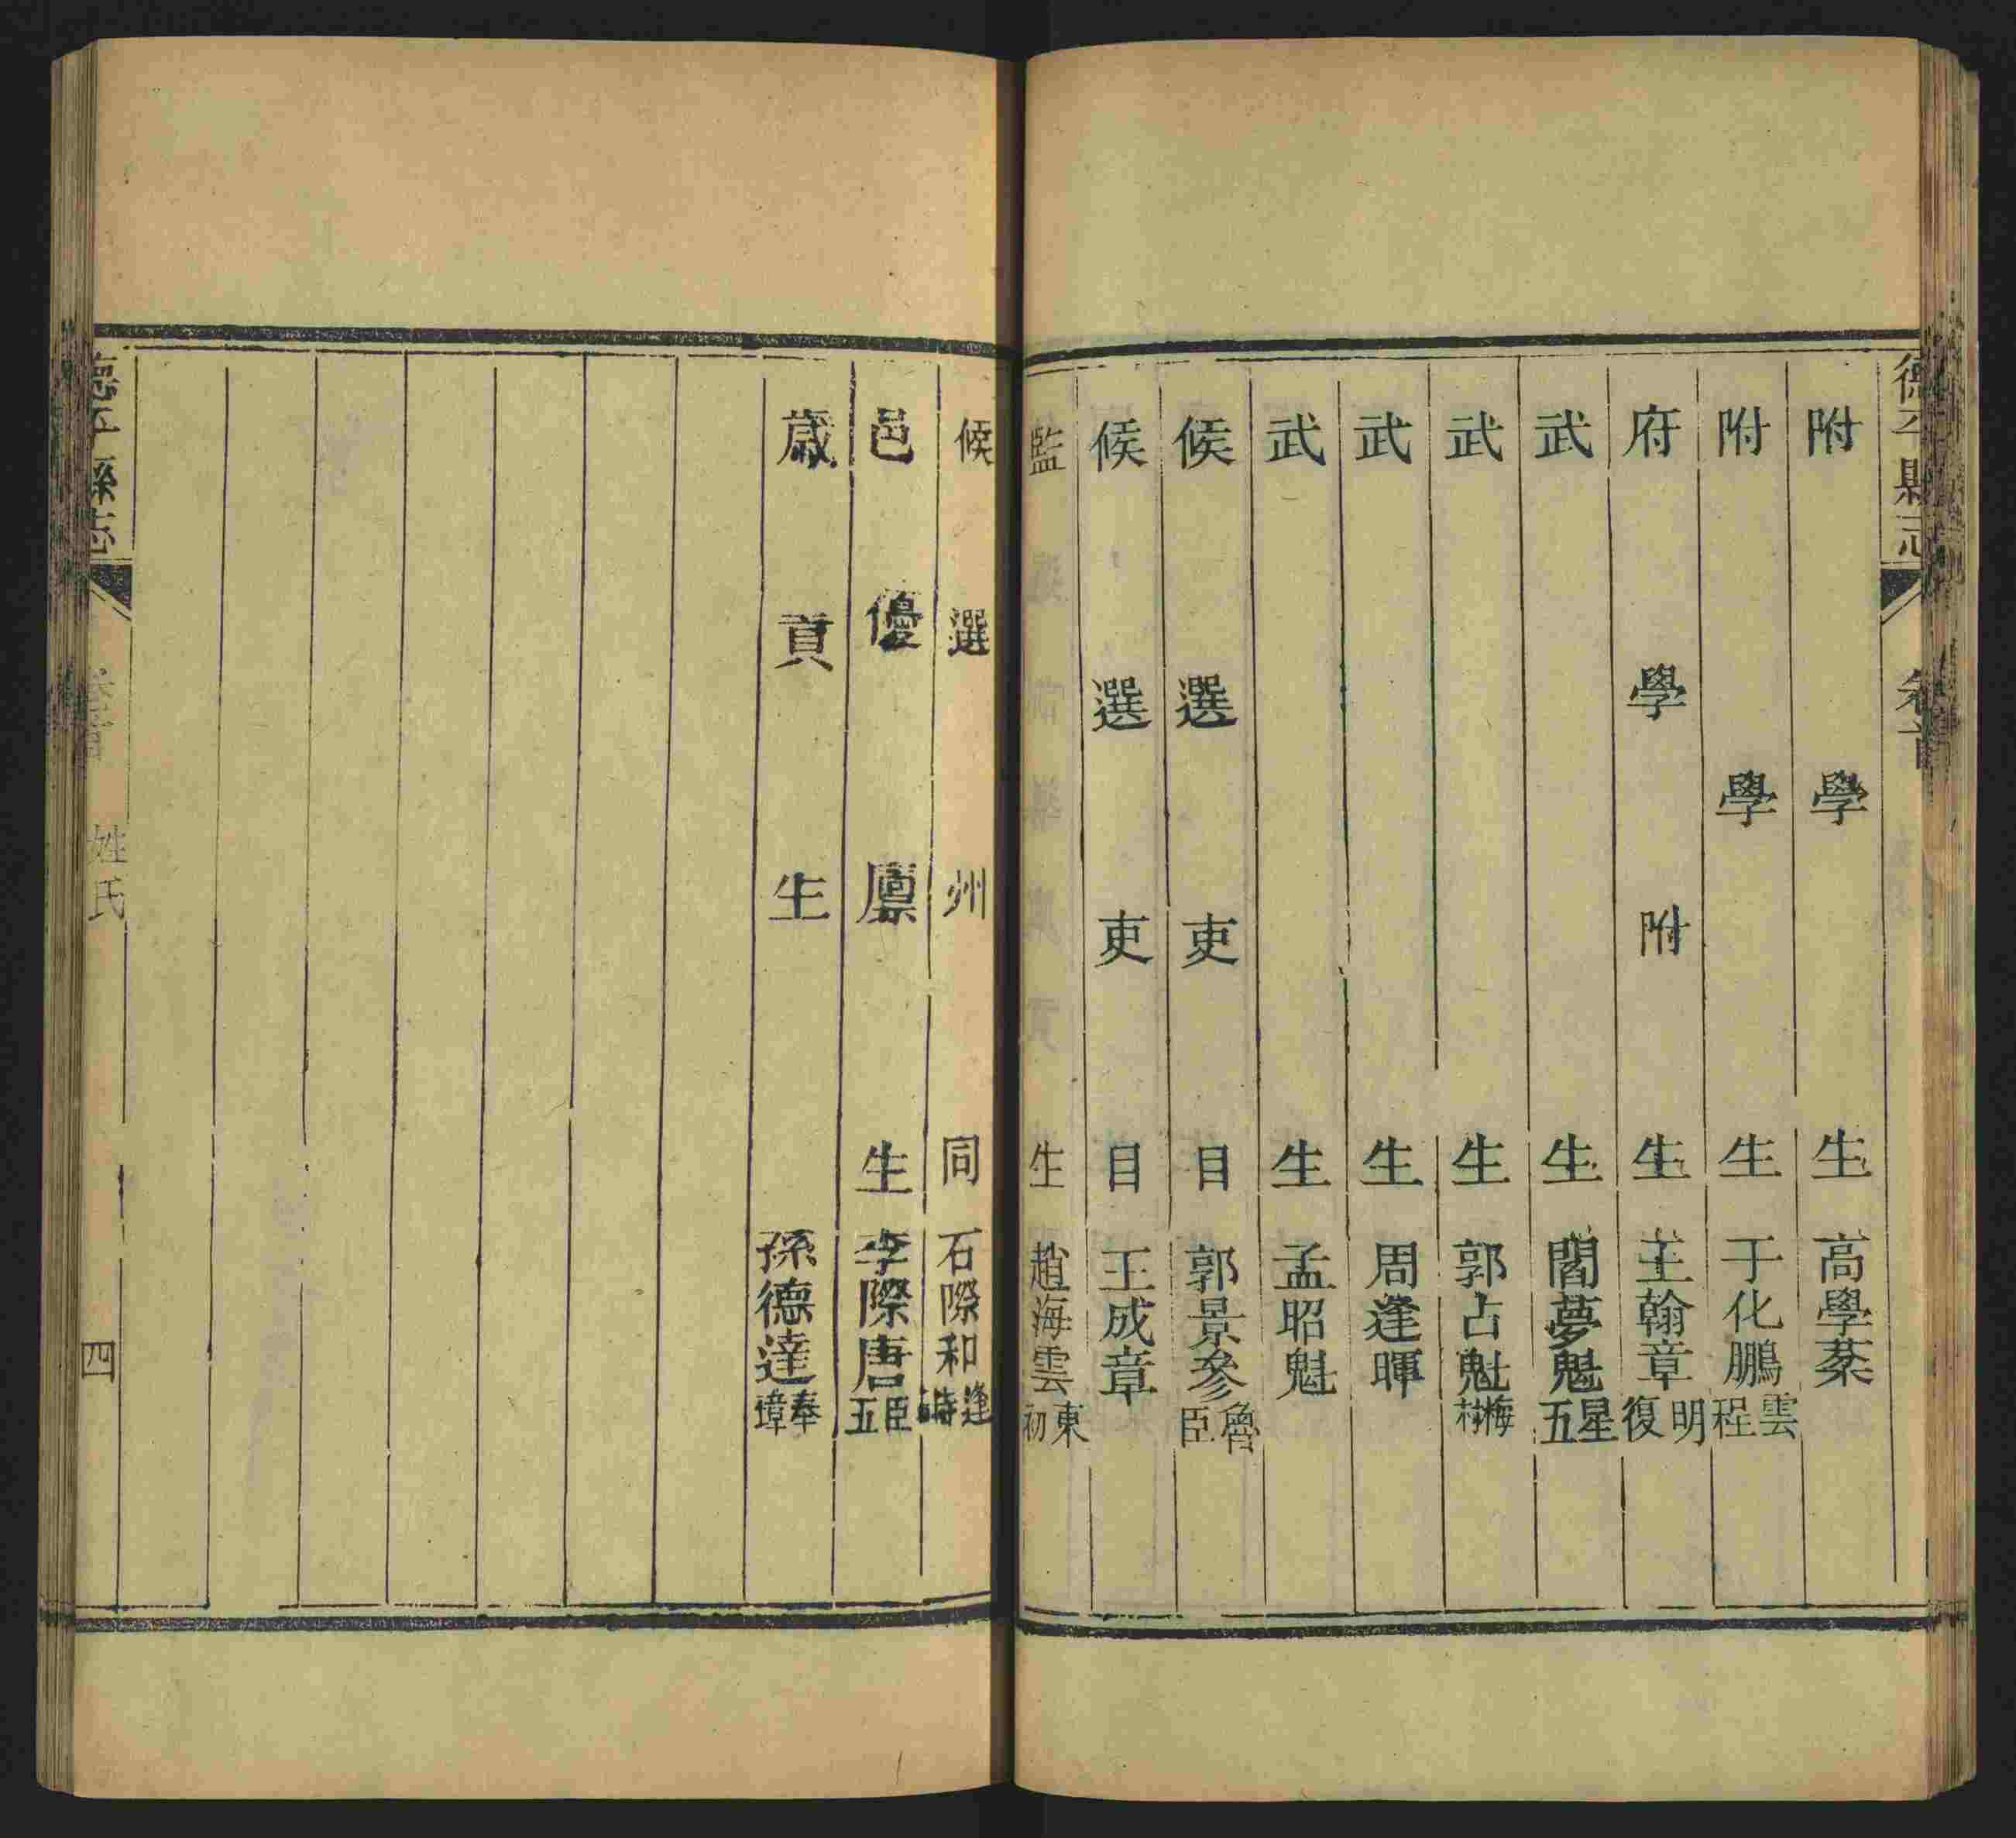 德平縣志
卷首
附學生高學棻
附學生于化鵬雲程
府學附生王翰章明復
武生閻夢魁星五
武生郭占魁梅村
武生周逢暉
武生孟昭魁
候選吏目郭景參魯臣
候選吏目王成章
監生趙海雲東初
候選州同石際和逢時
邑優廪生李際唐臣五
歲貢生孫德達奉璋
德平縣志
卷首
姓氏
四